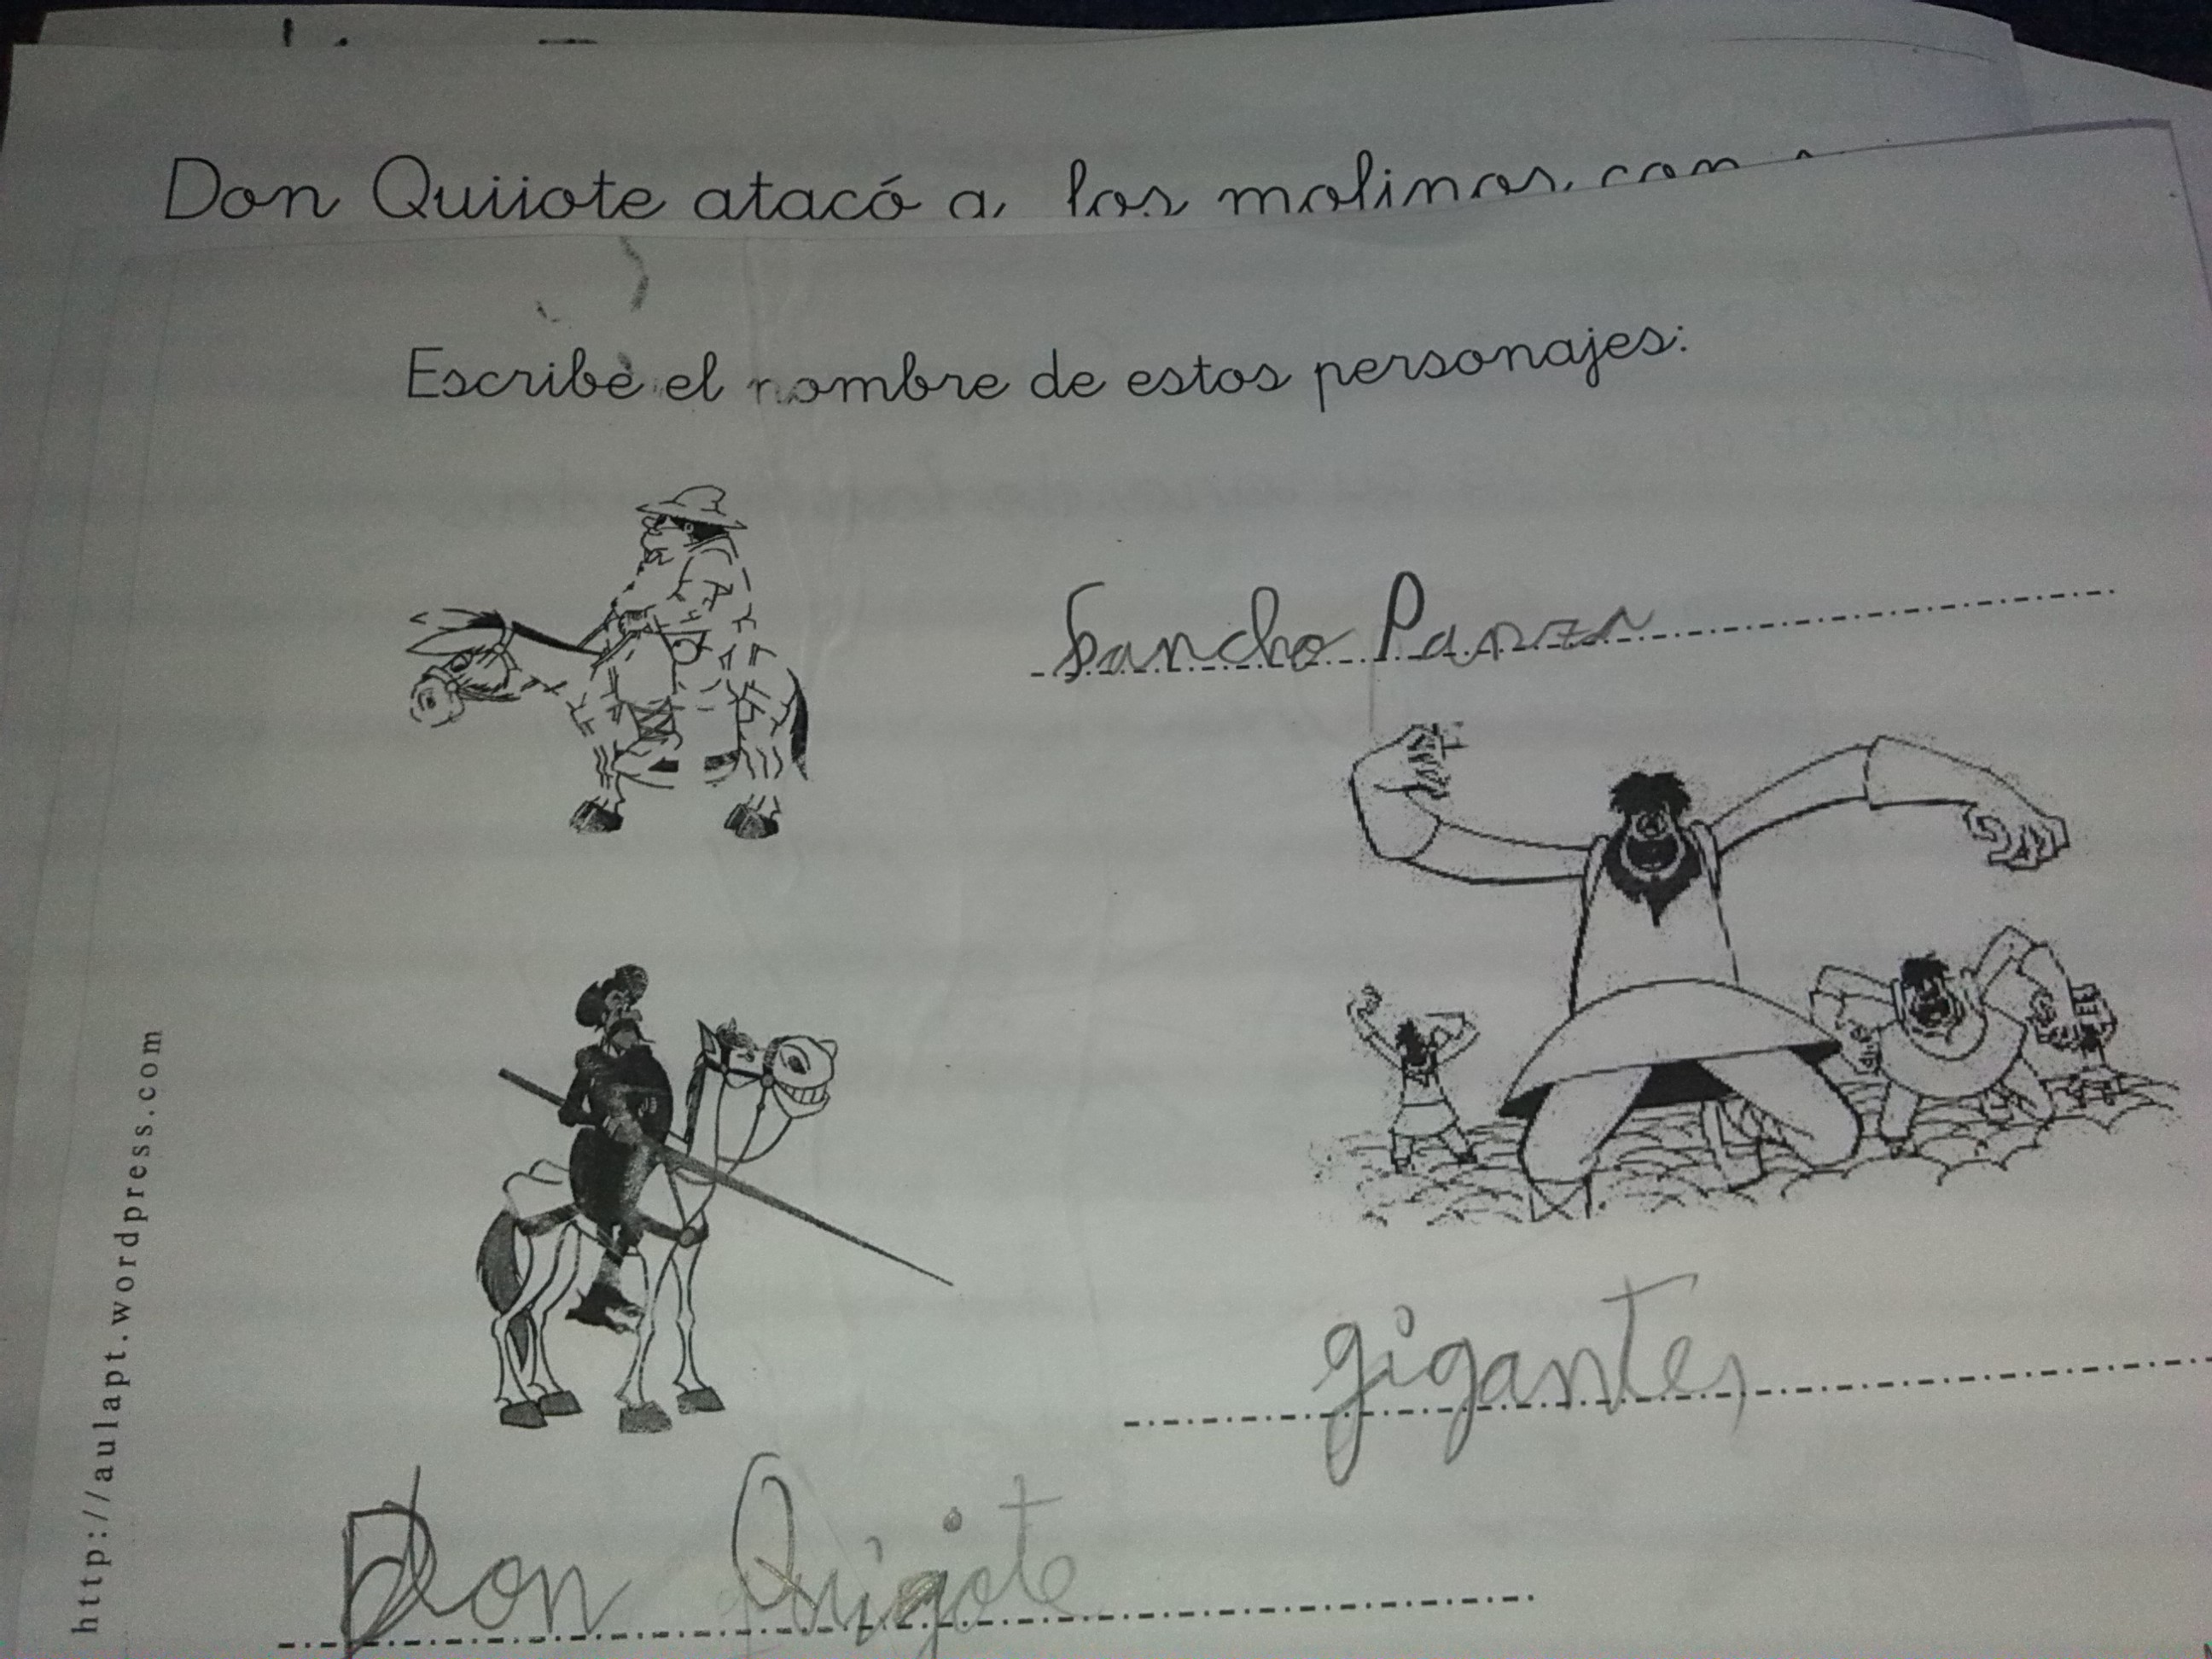 Don Quijote atacó a los molinos con
Escribe el nombre de estos personajes:
Sancho Panza
gigantes
Don Quijote
http://aulapt.wordpress.com